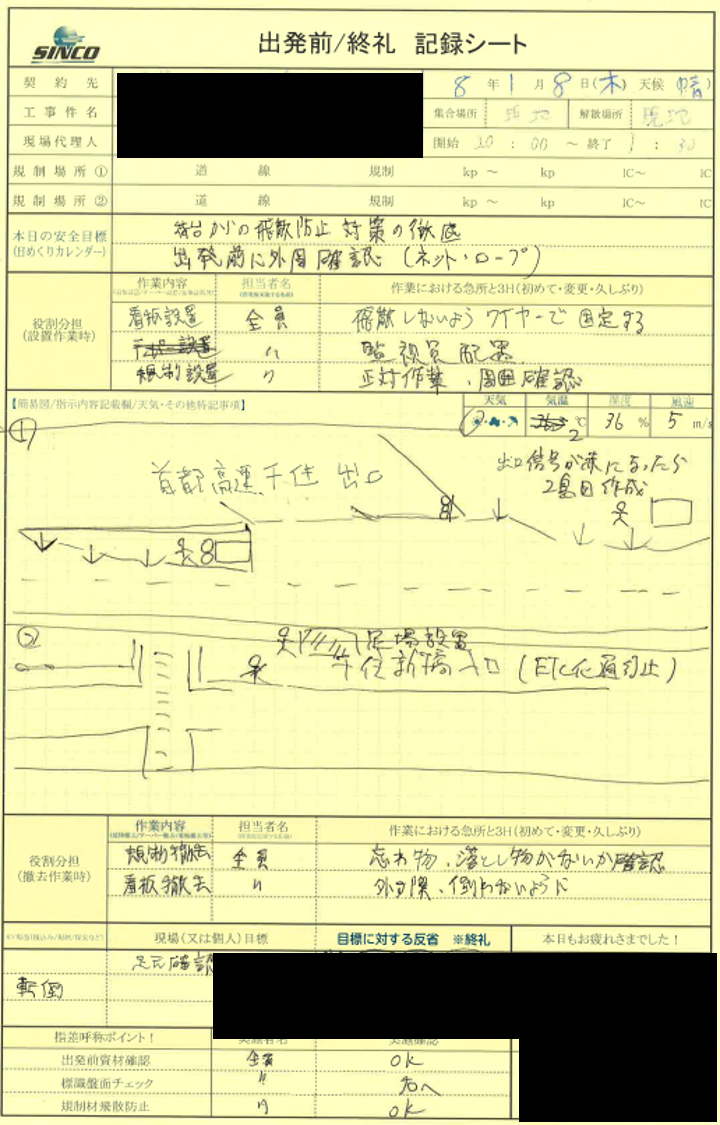 SINCO
出発前/終礼 記録シート
契約先
8 年 1 月 8 日(木) 天候(晴)
工事件名
集合場所 現地 解散場所 現地
現場代理人
開始 20 : 00 ～ 終了 1 : 30
規制場所① 道 線 規制 kp ～ kp IC～ IC
規制場所② 道 線 規制 kp ～ kp IC～ IC
本日の安全目標
(日めくりカレンダー)
荷台からの飛散防止対策の徹底
出発前に外周確認 (ネット・ロープ)
役割分担
(設置作業時)
作業内容 担当者名 作業における急所と3H(初めて・変更・久しぶり)
看板設置 全員 飛散しないようワイヤーで固定する
テーパー設置 〃 監視員配置
規制設置 〃 正対作業、周囲確認
【簡易図/指示内容記載欄/天気・その他特記事項】
天気 気温 湿度 風速
2 ℃ 36 % 5 m/s
①
首都高速千住出口
出口信号が赤になったら
2島目作成
②
足場設置
千住新橋入口 (ETC化通行止)
役割分担
(撤去作業時)
作業内容 担当者名 作業における急所と3H(初めて・変更・久しぶり)
規制撤去 全員 忘れ物、落とし物がないか確認
看板撤去 〃 外す際、倒れないように
現場(又は個人)目標 目標に対する反省 ※終礼 本日もお疲れさまでした!
転倒
足元確認
指差呼称ポイント! 実施者名 実施確認
出発前資材確認 全員 OK
標識盤面チェック 〃
規制材飛散防止 〃 OK